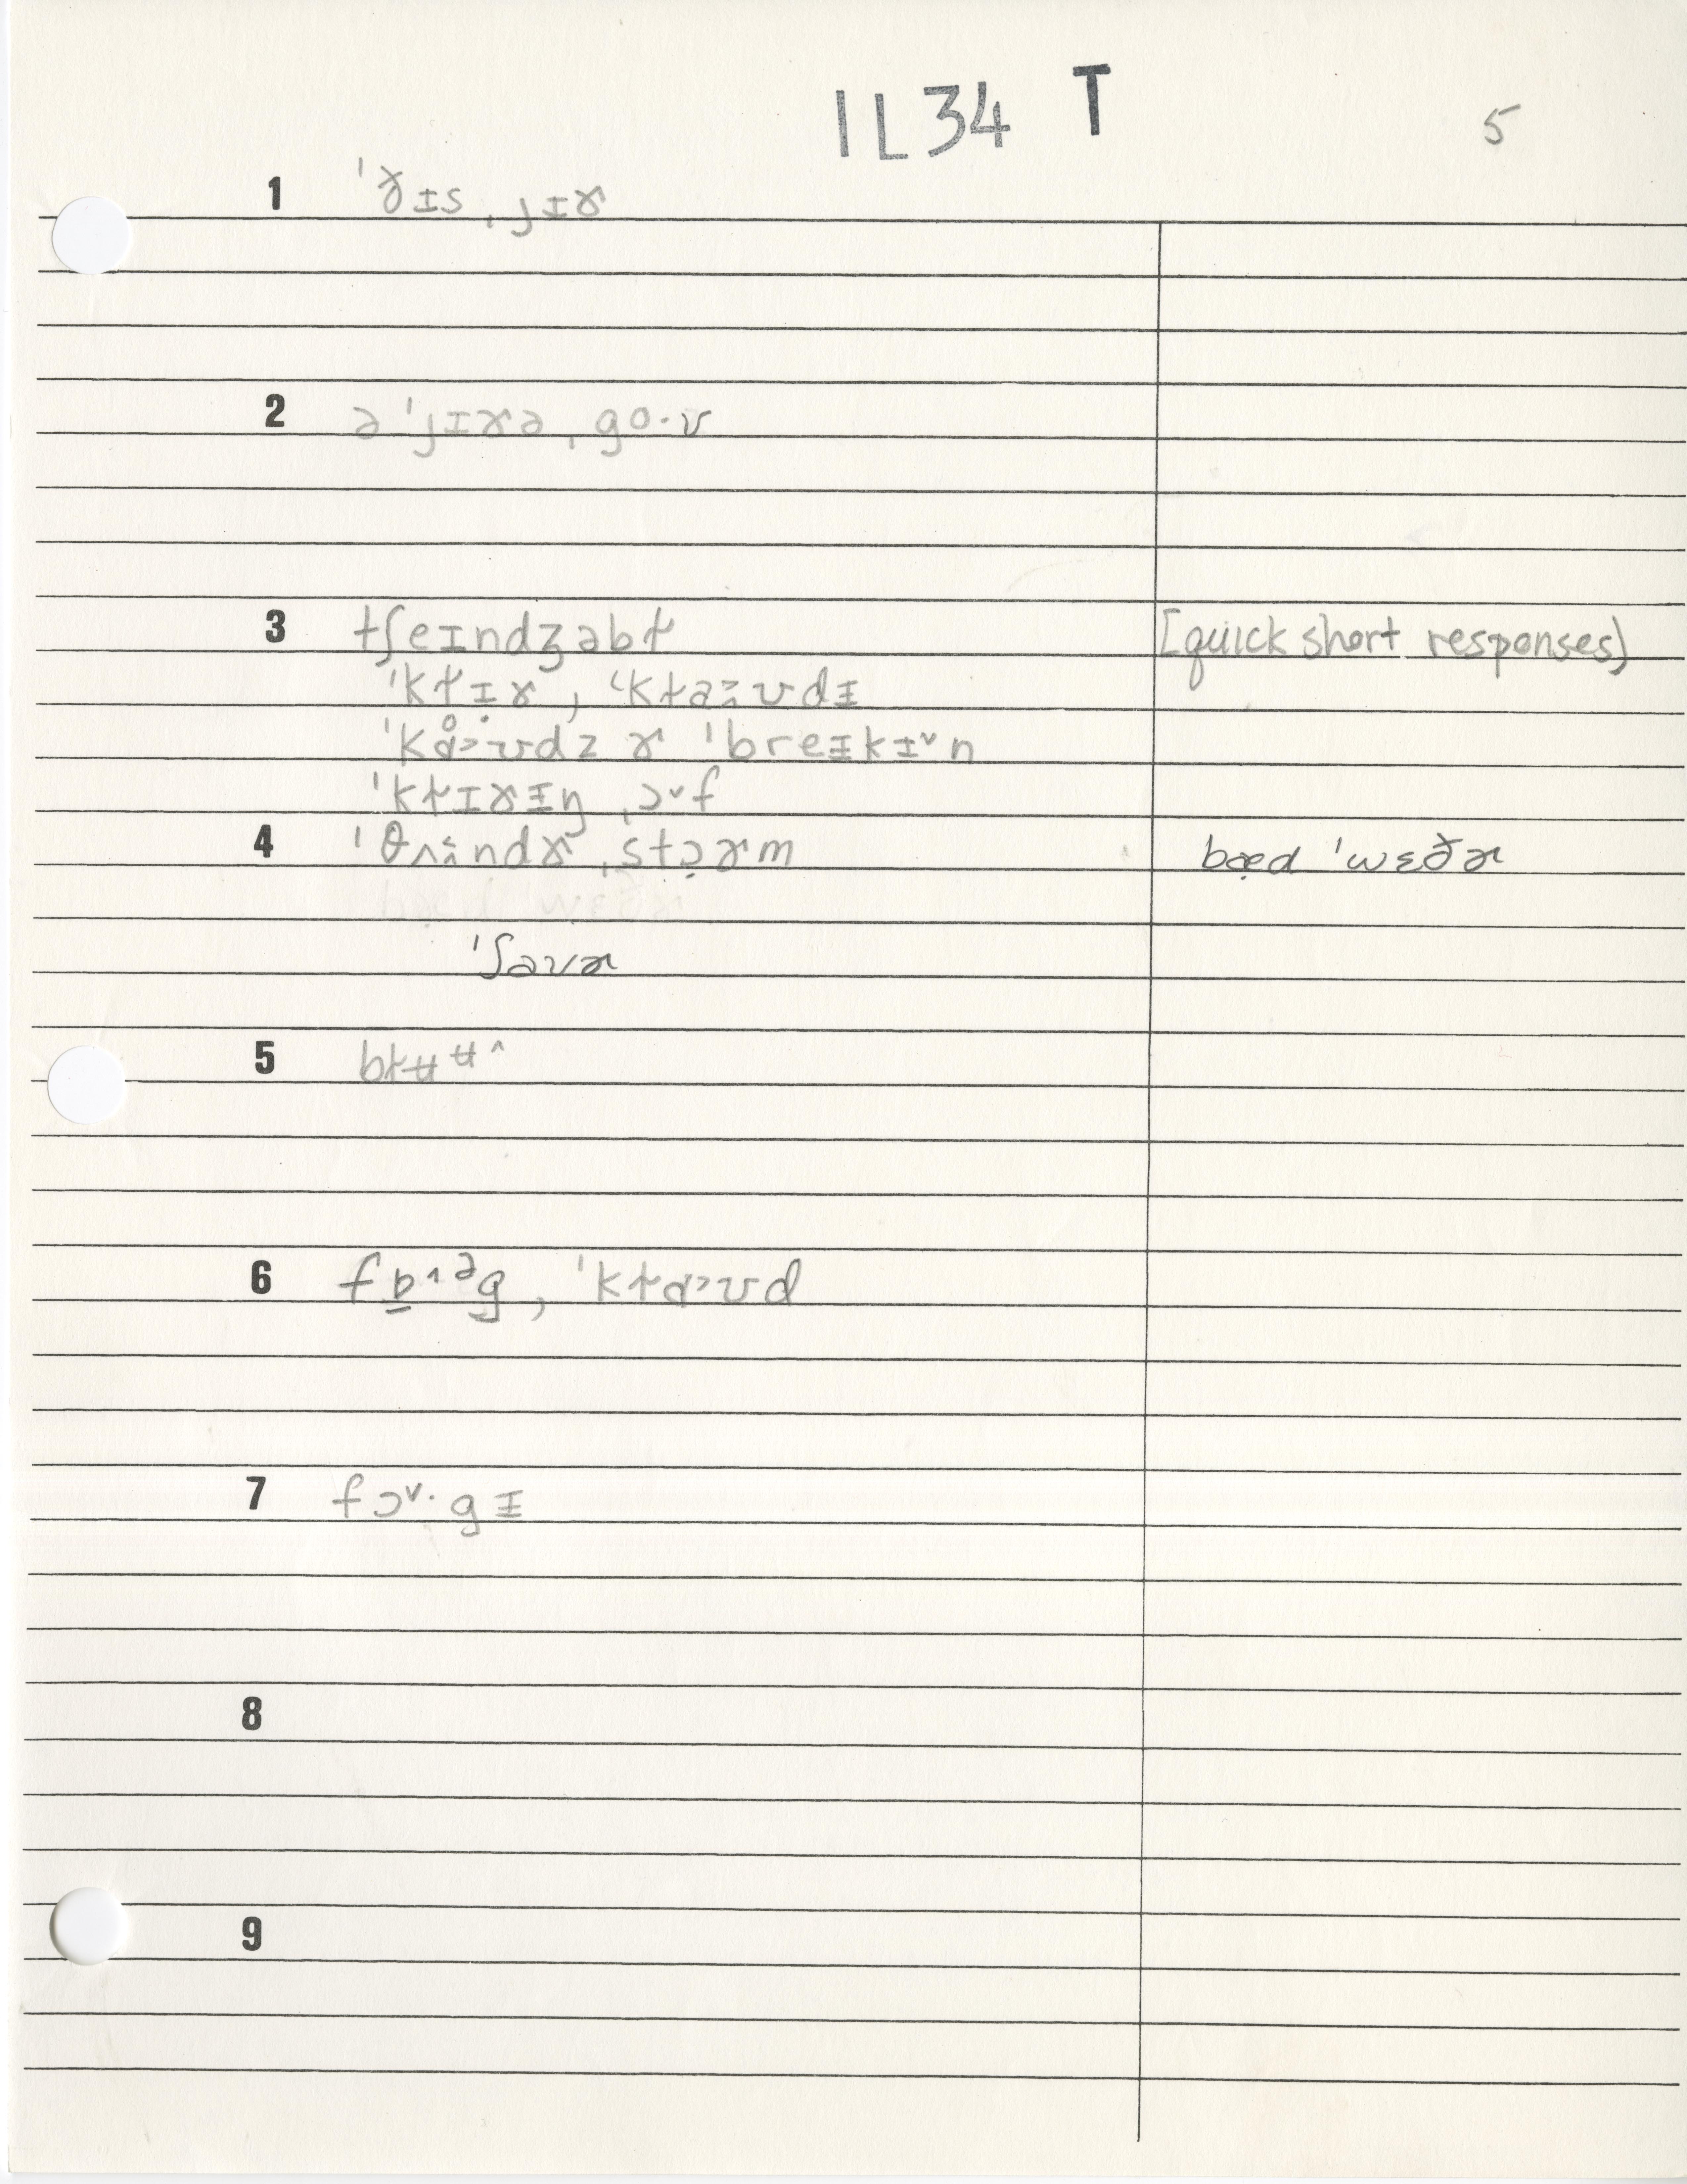 IL34 T 5
1 ˈðɪs ˌjɪɚ
2 ə ˈjɪɚə ˌgo·ʊ
3 tʃeɪndʒəbɫ [quick short responses)
ˈkɫɪɚ, ˈkɫaʊdɪ
ˈkɑ̊>ʊdz ɚ ˈbreɪkɪ˅n
ˈkɫɪɚɪŋ ˌɔ˅f
4 ˈθʌndɚ ˌstɔ̣ɚm bæ̣d ˈwɛðɚ
ˈʃaʊɚ
5 bɫʉʉ^
6 fɒ̱^ᵊg, ˈkɫɑ>ʊd
7 fɔ˅·gɪ
8
9